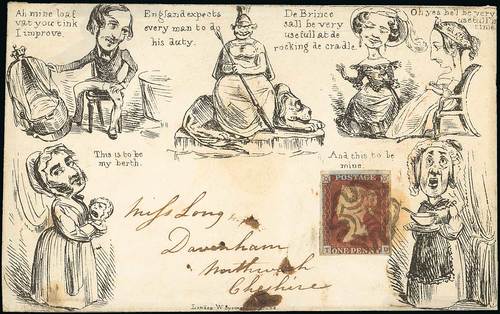 Ah mine loaf
vat you tink
I improve.
England expects
every man to do
his duty.
De Brince
sall be very
usefull at de
rocking de cradle.
Oh yes he'l be very
usefull
time.
This is to be
my berth.
And this to be
mine.
Miss Long
Davenham
Northwich
Cheshire
POSTAGE
ONE PENNY
London W.